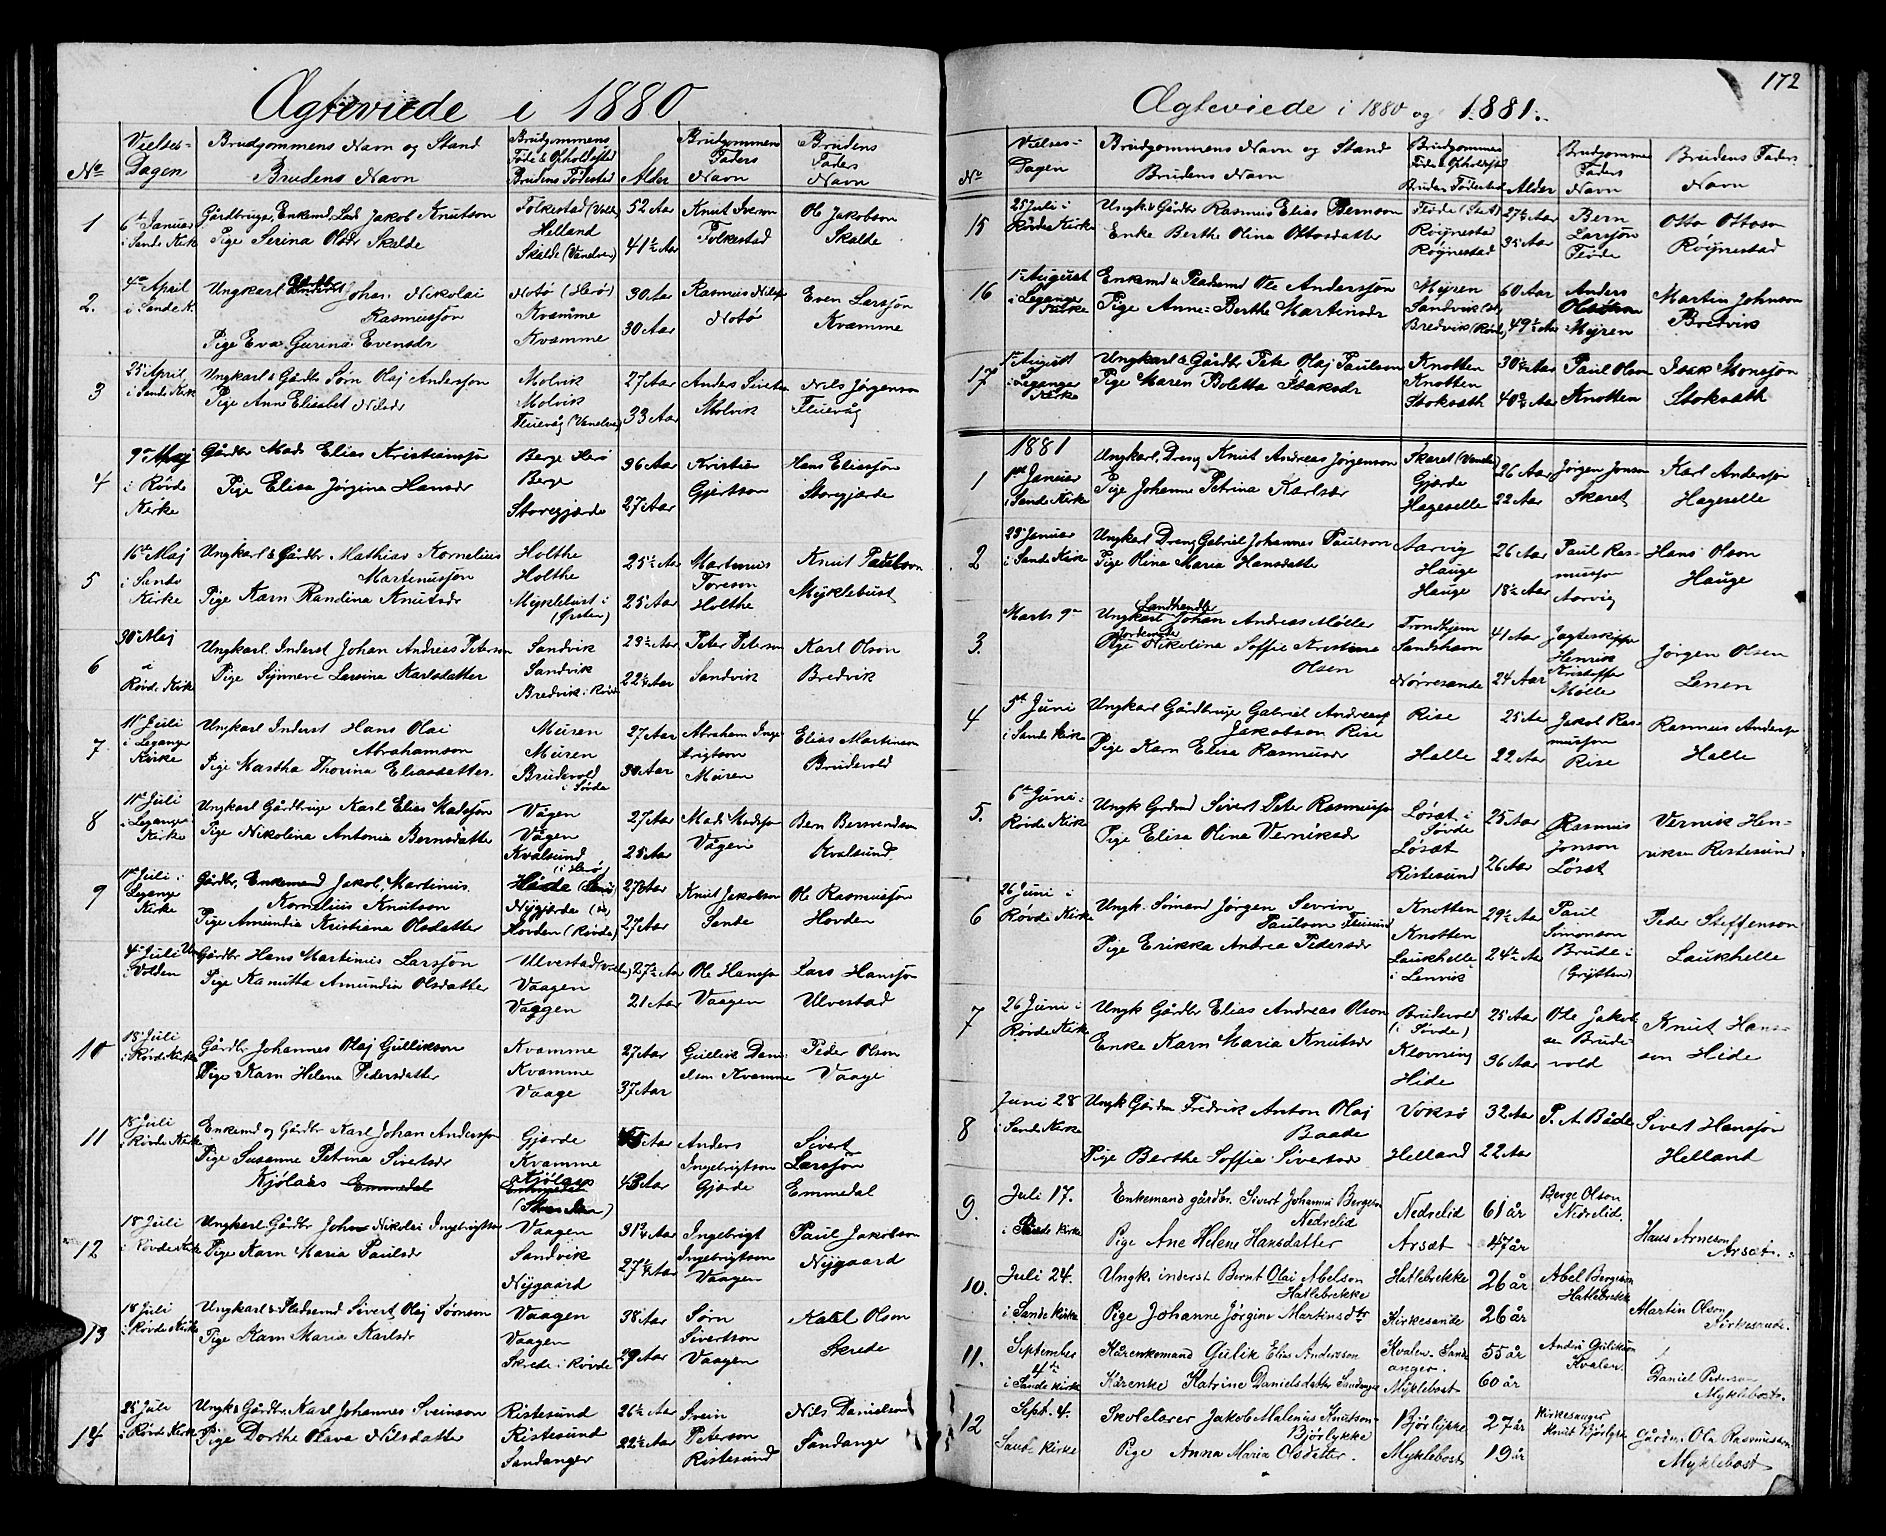 Ægteviede i 1880
No
Vielses-Dagen
Brudgommens Navn og Stand
Brudens Navn
Brudgommens Føde & Opholdssted
Brudens Fødested
Alder
Brudgommens Faders Navn
Brudens Faders Navn
1
6te Januar i Sande Kirke
Gårdbruger, Enkemd, Lods Jakob Knutson
Pige Serina Olsdr Skelde
Folkestad (Volden)
Helland
Skelde (Vanelven)
52 Aar
41½ Aar
Knut Iverson Folkestad
Ole Jakobson Skelde
2.
4de April i Sande K.
Ungkarl Johan Nikolai Rasmussøn
Pige Eva Gurina Evensdr
Notø (Herø)
Kvamme
Kvamme
30 Aar
30 Aar
Rasmus Nilsøn Notø
Even Larssøn Kvamme
3
25 April i Sande Kirk
Ungkarl & Gårdbr Sørn Olaj Anderssøn
Pige Anne Elisabet Nilsdr
Molvik
Molvik
Fleievåg (Vanelven)
27 Aar
33 Aar
Anders Siverts Molvik
Nils Jørgenson Fleievåg
4
9de Maj i Røvde Kirke
Gårdbr Mads Elias Kristianssøn
Pige Elisa Jørgina Hansdr
Berge Herø
Berge
Storegjærde
36 Aar
27 Aar
Kristian Gjertson
Hans Eliassøn Storgjærde
5
16de Maj i Sande Kirke
Ungkarl & Gårdbr Mathias Kornelius Martinussøn
Pige Karn Randina Knutsdr
Holthe
Holthe
Myklebust i (Ørsten)
25½ Aar
25 Aar
Martinus Toreson Holthe
Knut Paulson Myklebust
6
30te Maj i Røvde Kirk
Ungkarl Inderst Johan Andreas Peterson
Pige Synneve Larsina Karlsdatter
Sandvik
Sandvik
Bredvik i Røvde
23½ Aar
22½ Aar
Peter Peterson Sandvik
Karl Olson Bredvik
7
11te Juli i Leganger Kirke
Ungkarl Inderst Hans Olai Abrahamson
Pige Martha Thorina Eliasdatter
Müren
Müren
Brudevold i Søvde
27 Aar
30 Aar
Abraham Ingebrigtson Müren
Elias Martinson Brudevold
8
11te Juli i Leganger Kirke
Ungkarl Gårdbruger Karl Elias Madssøn
Pige Nikolina Antonia Bernsdatter
Vågen
Vågen
Kvalsund (i Herø)
27 Aar
25 Aar
Mads Madsson Vågen
Bern Berwendson Kvalsund
9
11te Juli i Leganger Kirke
Gårdbr, Enkemand Jakob Martinus Kornelius Knutson
Pige Amundia Kristiana Olsdatter
Nygjærde
Hovden (Røvde)
27 Aar
27 Aar
Knut Jakobson Sande
Ole Rasmussøn Hovden
4de Juli i Volden
Gårdbr Hans Martinus Larssøn
Pige Kanutta Amundia Olsdatter
Ulvestad
Vaagen
Vaagen
27½ Aar
21 Aar
Ole Hanssøn Vaagen
Lars Hanssøn Ulvestad
10
18 Juli i Røvde Kirke
Gårdbr Johannes Olaj Gullikson
Pige Karn Helena Pedersdatter
Kvamme
Kvamme
Vaage
27 Aar
37 Aar
Gullik Danielson Kvamme
Peder Olson Vaage
11
18 Juli i Røvde Kirke
Enkemd og Gårdbr Karl Johan Anderssøn
Pige Susanne Petrina Sivertsdr
Kjølaas Emmedal
Gjærde
Kvamme
Kjølaas
Aar
43 Aar
Anders Ingebrigtson Gjærde
Sivert Larssøn Emmedal
12
18 Juli i Røvde Kirke
Ungkarl Gårdbr John Nikolai Ingebrigtson
Pige Karn Maria Paulsdr
Vaagen
Sandvik
Nygaard
31¾ Aar
27¼ Aar
Ingebrigt Ingebrigtson Vaagen
Paul Jakobson Nygaard
13
18 Juli i Røvde Kirke
Ungkarl & Pladsemd Sivert Olaj Sørnson
Pige Karn Maria Karlsdr
Vaagen
Vaagen
Skrede i Røvde
38 Aar
29 Aar
Sørn Sivertson Vaagen
Karl Olson Skrede
14
25 Juli i Røvde Kirke
Ungk & Gårdbr Karl Johannes Sveinson
Pige Dorthe Olava Nilsdatter
Ristesund
Ristesund
Sandanger
26½ Aar
22½ Aar
Svein Peterson Ristesund
Nils Danielson Sandanger
172
Ægteviede i 1880 og 1881.
No
Vielses-Dagen
Brudgommens Navn og Stand
Brudens Navn
Brudgommens Føde & Opholdssted
Brudens Fødested
Alder
Brudgommens Faders Navn
Brudens Faders Navn
15
25 Juli i Røvde Kirke
Ungk. & Gårdbr Rasmus Elias Bernson
Enke Berthe Olina Ottosdatter
Fløde
Røgnestad
Røgnestad
27½ Aar
35 Aar
Bern Larssøn Fløde
Otto Ottoson Røgnestad
16
1ste August i Leganger Kirke
Enkemd & Pladsemd Ole Anderssøn
Pige Anne-Berthe Martensdr
Myren
Sandvik
Bredvik (Røvde)
60 Aar
49½ Aar
Anders Olsson Myren
Martin Johnson Bredvik
17
1ste August i Leganger Kirke
Ungkarl & Gårdbr Peter Olaj Paulson
Pige Maren Boletta Isaksdr
Knotten
Knotten
Stoksæth
30½ Aar
40¾ Aar
Paul Olson Knotten
Isak Monsøn Stoksæth
1881
1
1ste Januar i Sande Kirke
Ungkarl, Dreng Knut Andreas Jørgenson
Pige Johanne Petrina Karlsdr
Skaret (Vanelven)
Gjærde
Hageselle
26 Aar
22 Aar
Jørgen Jonson Skaret
Karl Anderssøn Hageselle
2
23 Januar i Sande Kirk
Ungkarl Dreng Gabriel Johannes Paulson
Pige Olina Maria Hansdatter
Aarvig
Hauge
Hauge
26 Aar
18½ Aar
Paul Rasmussøn Aarvig
Hans Olson Hauge
3.
Marts 9de
Landhandler
Ungkarl Johan Andreas Møller
Jordemoder
Pige Nikolina Soffie Kristine Olsen
Trondhjem
Sandshavn
Nørresande
41 Aar
24 Aar
Jagteskipper Henrik Kristoffer Møller
Jørgen Olsen Lenen
4
5te Juni i Sande Kirk
Ungkarl Gårdbruger Gabriel Andreas Jakobson Rise
Pige Karn Elisa Rasmusdr
Rise
Halle
25 Aar
22 Aar
Jakob Rasmussøn Rise
Rasmus Anderssøn Halle
5.
6te Juni i Røvde Kirke
Ungk Grdmd Sivert Peter Rasmussøn
Pige Elisa Olina Verniksdr
Løsæt i Søvde
Løsæt
Ristesund
25 Aar
26 Aar
Rasmus Jonson Løsæt
Vernik Henriksen Ristesund
6
26 Juni i Røvde Kirke
Ungk. Sømand Jørgen Severin Paulson
Pige Erikka Andrea Pedersdr
Knotten
Knotten
Laukhelle i Lenvik
29½ Aar
24½ Aar
Paul Simonson Brude i
Peder Steffenson Laukhelle
7
26 Juni i Røvde Kirk
Ungk Gårdbr Elias Andreas Olson
Enke Karn Maria Knutsdr
Brudevold (i Søvde)
Kløvning
Hide
25 Aar
36 Aar
Ole Jakobsen Brudevold
Knut Hansson Hide
8
Juni 28 i Sande Kirke
Ungk Gårdm Fredrik Anton Olaj Baade
Pige Berthe Soffia Sivertsdr
Voksø
Helland
32 Aar
22 Aar
P. A. Både
Sivert Hanssøn Helland
9.
Juli 17. i Sande Kirke
Enkemand gårdbr. Sivert Johannes Bergeson Nedrelid
Pige Ane Helene Hansdatter
Nedrelid
Arsæt
61 år
47 år
Berge Olson Nedrelid.
Hans Arneson Arsæt.
10.
Juli 24. i Sande Kirke
Ungk. inderst Bernt Olai Abelson Hatlebrekke
Pige Johanne Jørgine Martinsdtr
Hatlebrekke
Kirkesande
26 år
26 år
Abel Bergeson Hatlebrekke
Martin Olson Kirkesande.
11.
September 4de i Sande Kirke
Kårenkemand Gulik Elias Andersson
Kårenke Katrine Danielsdatter Sandanger
Kvalen. Sandanger.
Myklebost
55 år
60 år
Anders Gulikson Kvalen.
Daniel Pederson Myklebost.
12
Sept. 4. Sande Kirke
Skolelærer Jakob Malenius Knutson Bjørlykke
Pige Anna Maria Olsdatter.
Bjørlykke
Myklebost
27 år
19 år
Kirkesanger Knut Bjørlykke
Gårdm. Ole Rasmusson Myklebost